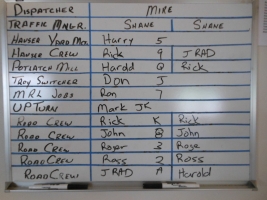 DISPATCHER MIKE
TRAFFIC MNGR. SHANE SHANE
HAUSER YARD MEN Harry 5
HAUSER CREW Rick 9 J RAD
POTLATCH MILL Harold Q Rick
TROY SWITCHER DON J
MRL JOBS RON 7
UP TURN MARK JK
ROAD CREW Rick K Rick
ROAD CREW John 8 John
ROAD CREW Roger 3 Roge
ROAD CREW Ross 2 Ross
ROAD CREW J RAD A Harold